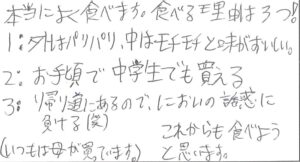 本当によく食べます。食べる理由は3つ!!
1:外はパリパリ、中はモチモチと味がおいしい。
2:お手頃で中学生でも買える
3:帰り道にあるので、においの誘惑に
負ける(笑)
これからも食べよう
(いつもは母が買てきます。)
と思います。